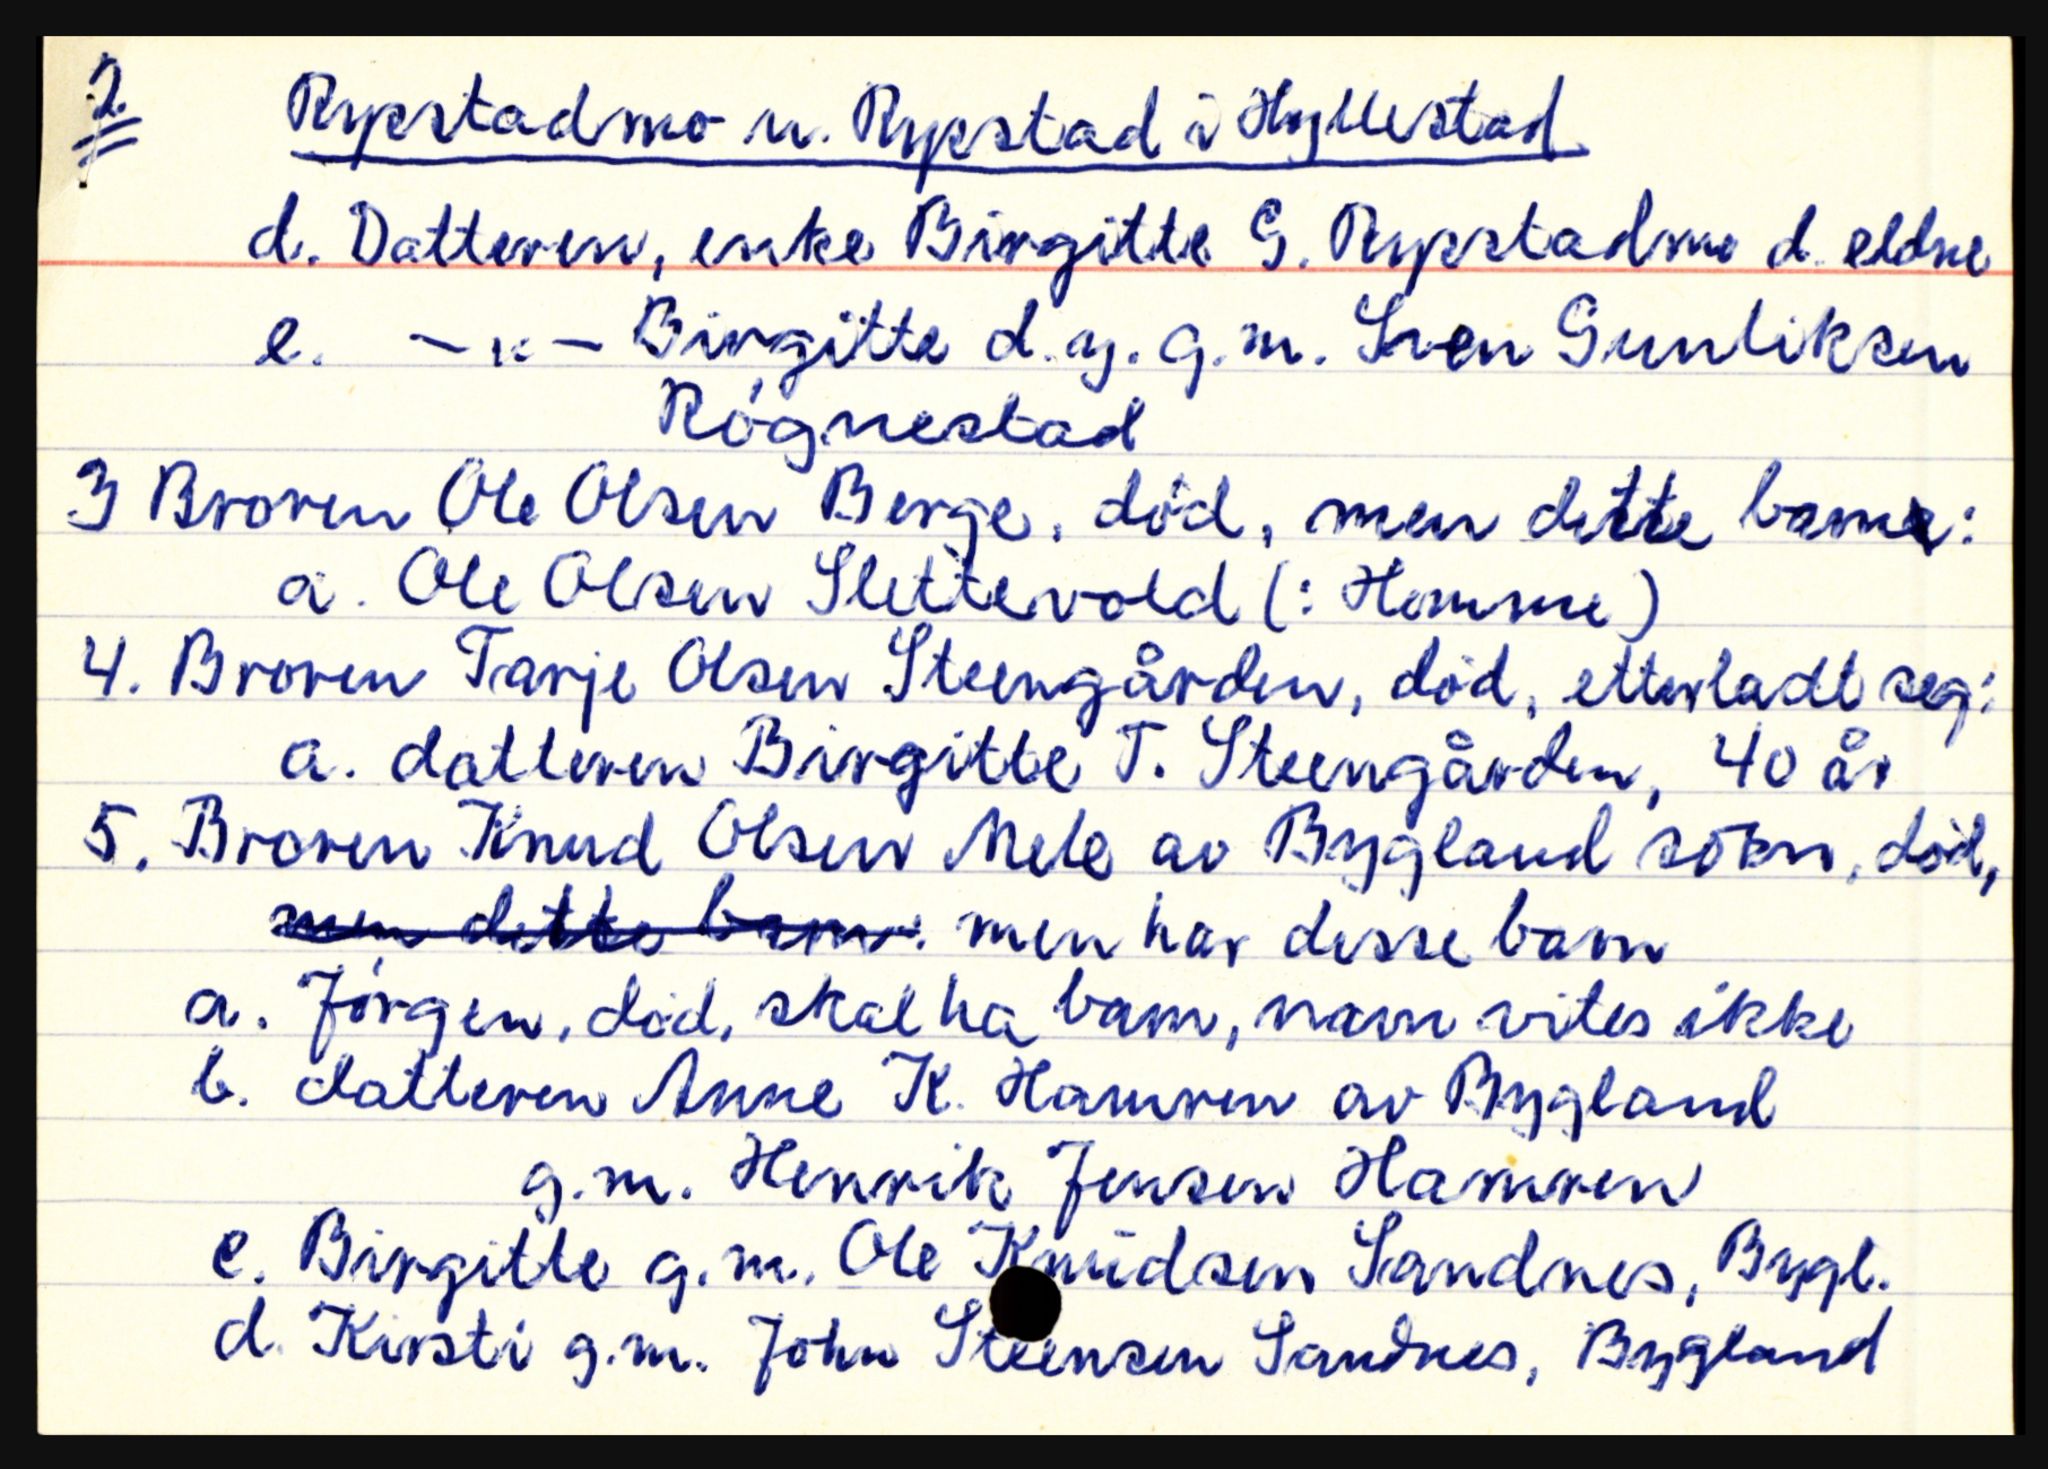 2.
Rypstadmo u. Rypstad i Hyllestad
d. Datteren, enke Birgitte G. Rypstadmo d. eldre
e. -"- Birgitte d.y. g.m. Sven Gunliksen
Rógnestad
3 Broren Ole Olsen Berge, död, men dette barne:
a. Ole Olsen Slettevold (: Homme)
4. Broren Tarje Olsen Steengården, död, etterladt seg:
a. datteren Birgitte T. Steengården, 40 år
5. Broren Knud Olsen Mele av Bygland sokn, död,
men dette barn: men har disse barn
a. Jórgen, död, skal ha barn, navn vites ikke
b. datteren Anne K. Hamren av Bygland
g.m. Henrik Jensen Hamren
c. Birgitte g.m. Ole Knudsen Sandnes, Bygl.
d. Kirsti g.m. John Steensen Sandnes, Bygland